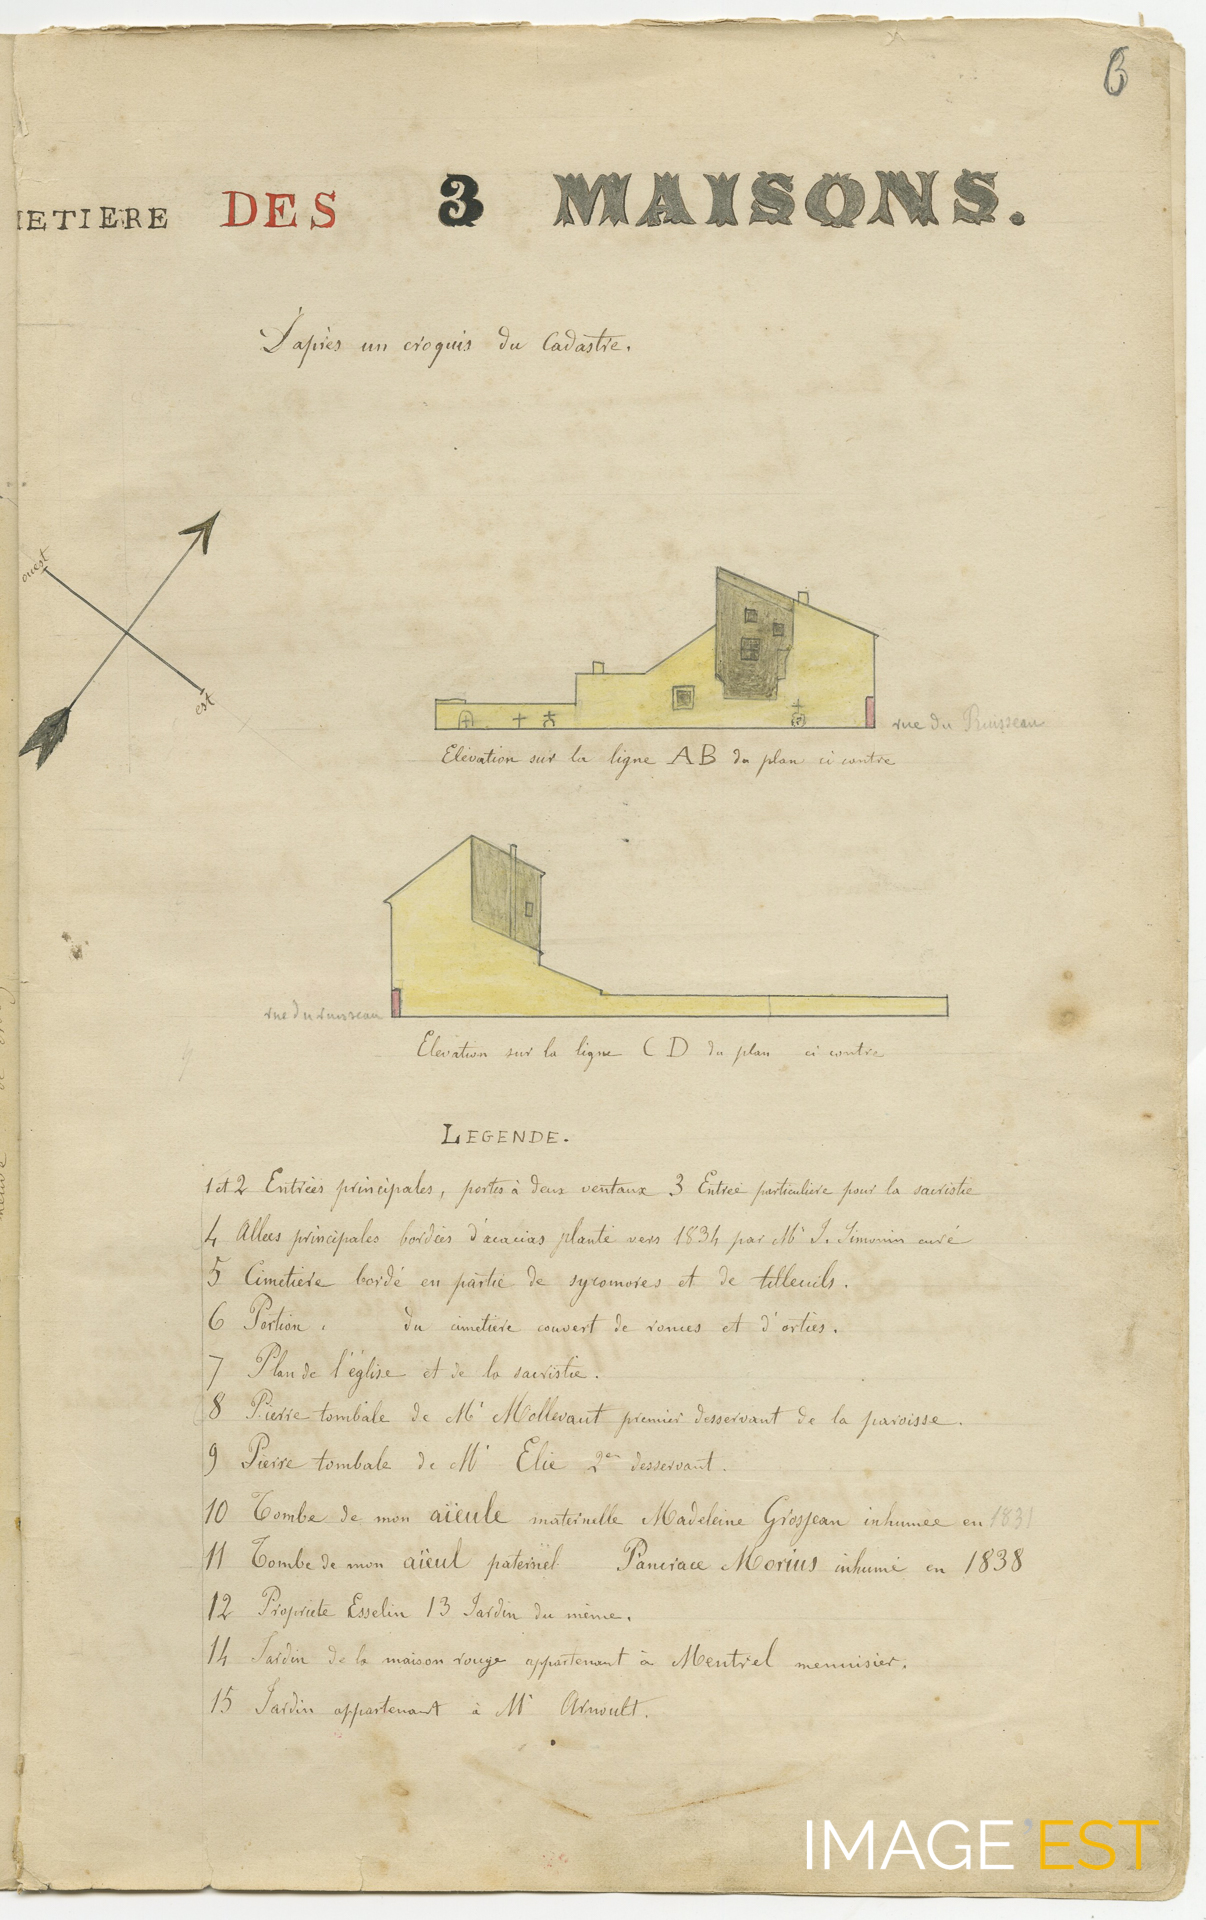 6
METIERE DES 3 MAISONS.
D'après un croquis du Cadastre.
ouest
est
rue du Ruisseau
Elévation sur la ligne AB du plan ci contre
rue du ruisseau
Elevation sur la ligne CD du plan ci contre
LEGENDE.
1 et 2 Entrées principales, portes à deux ventaux 3 Entrée particulière pour la sacristie
4 Allées principales bordées d'acacias planté vers 1834 par Mr J. Simonin curé
5 Cimetière bordé en partie de sycomores et de tilleuils.
6 Portion du cimetière couvert de ronces et d'orties.
7 Plan de l'église et de la sacristie.
8 Pierre tombale de Mr Mollevaut premier desservant de la paroisse.
9 Pierre tombale de Mr Elie 2en desservant.
10 Tombe de mon aïeule maternelle Madeleine Grosjean inhumée en 1831
11 Tombe de mon aïeul paternel Pancrace Morius inhumé en 1838
12 Propriété Esselin 13 Jardin du même.
14 Jardin de la maison rouge appartenant à Mentrel menuisier.
15 Jardin appartenant à Mr Arnoult.
IMAGE EST